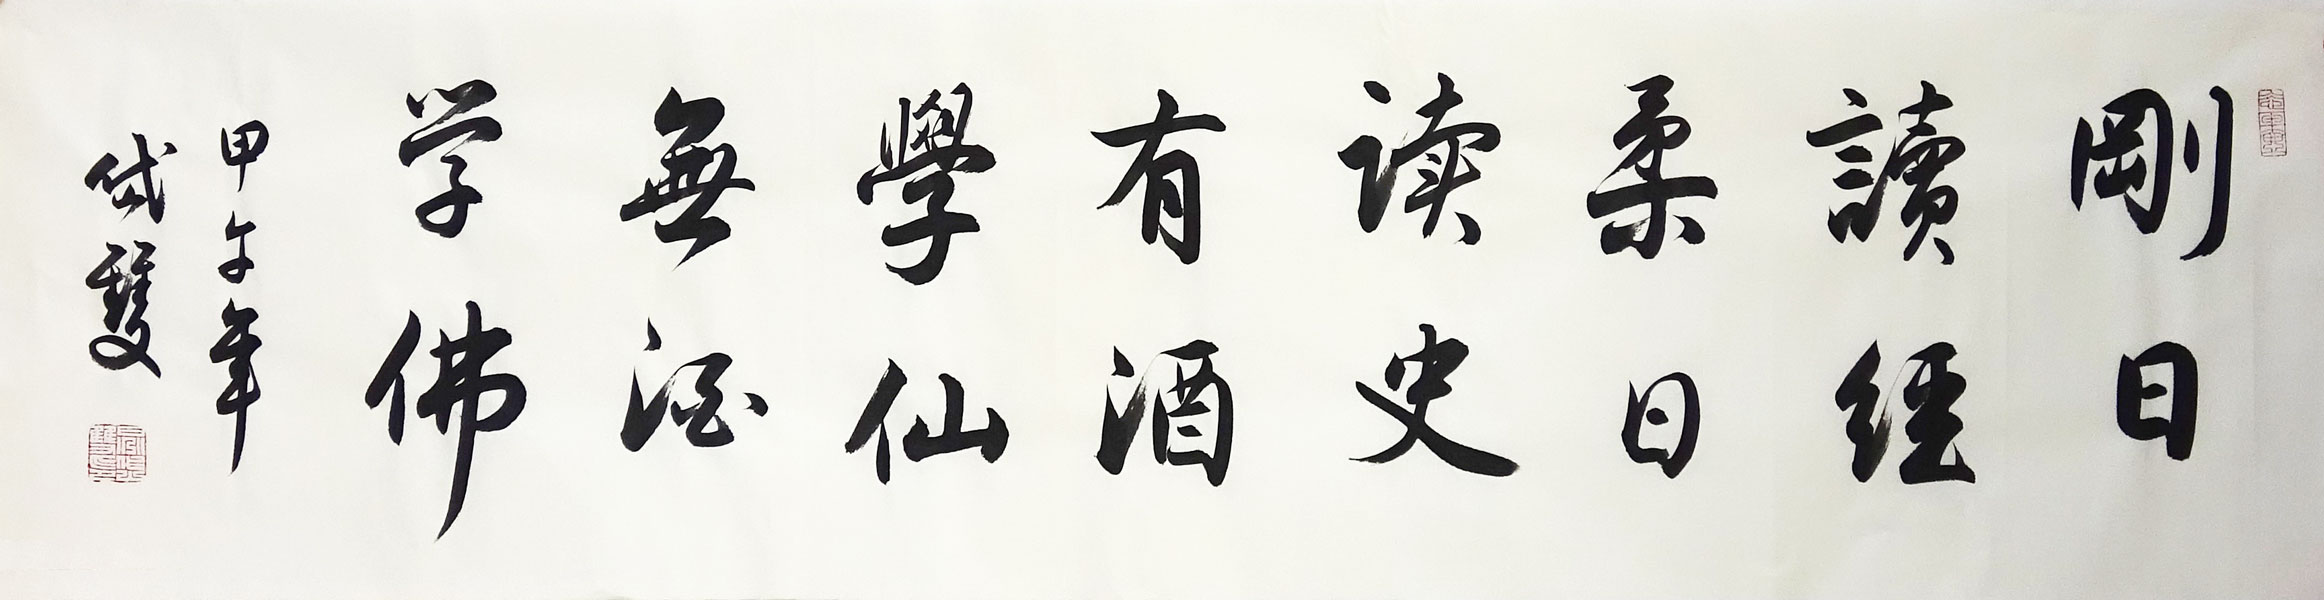 剛日
讀經
柔日
读史
有酒
學仙
無酒
学佛
甲午年
岱雙